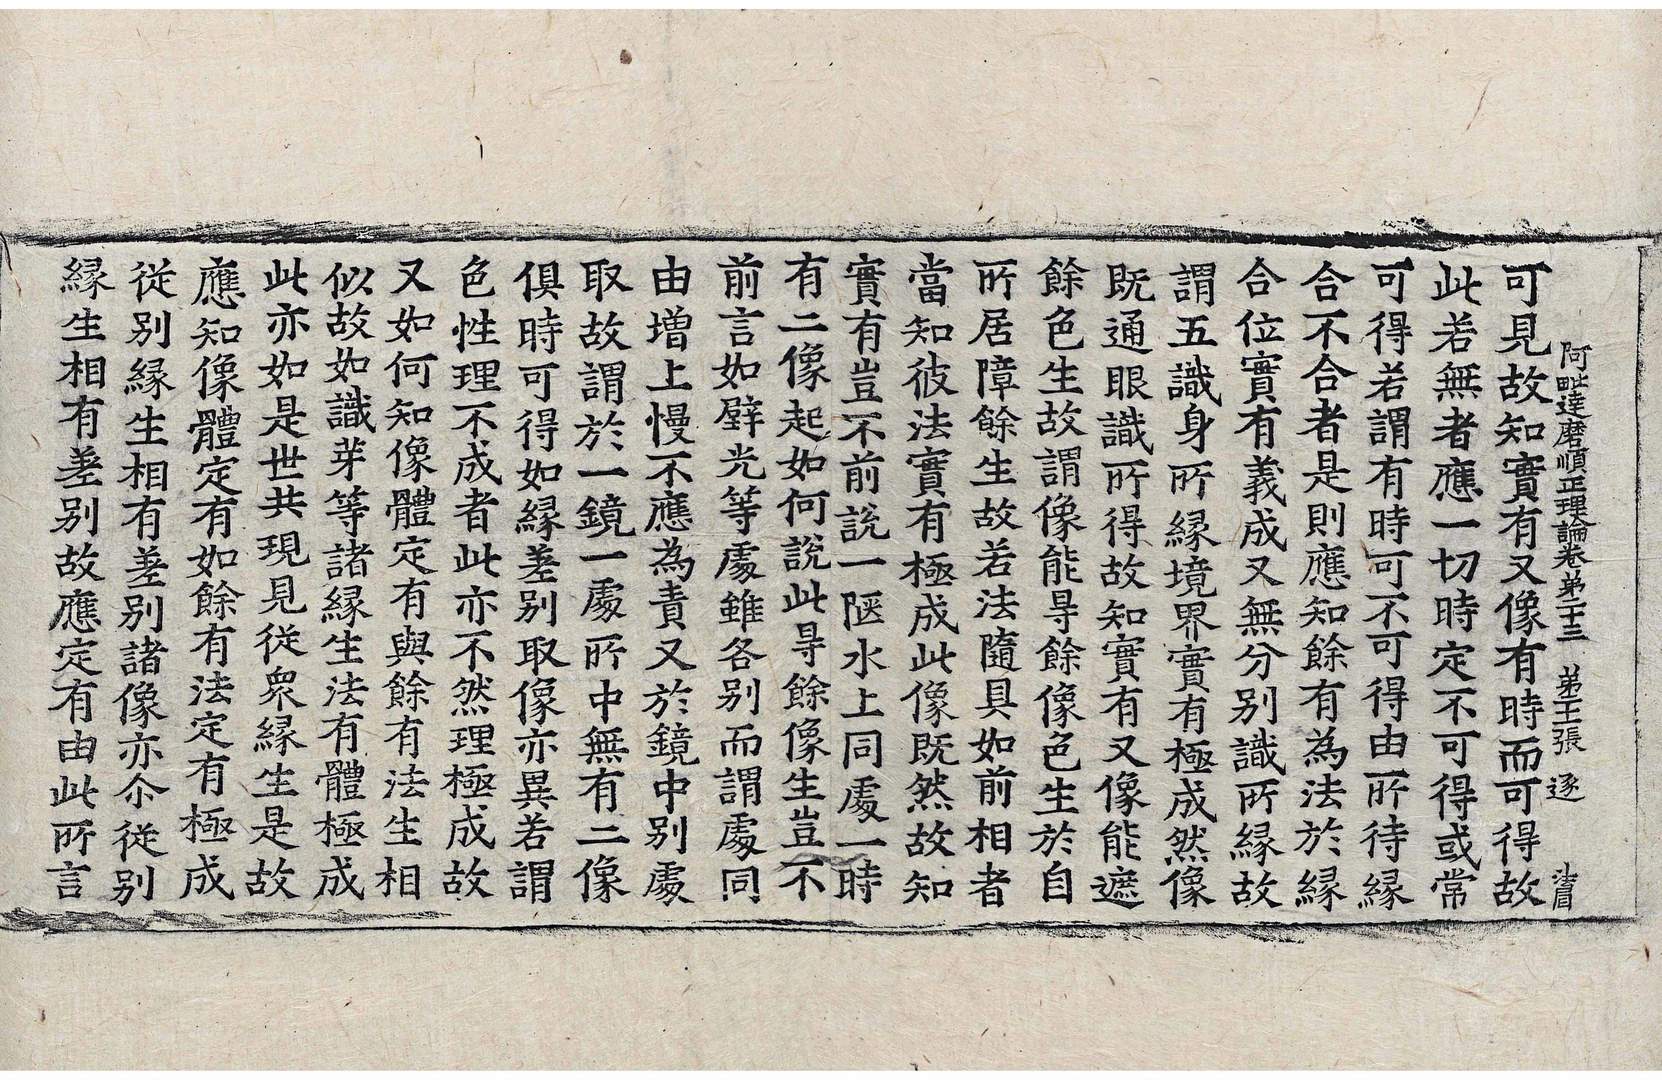 阿毗達磨順正理論卷第二十三 第二張 逐
可見故知實有又像有時而可得故
此若無者應一切時定不可得或常
可得若謂有時可不可得由所待緣
合不合者是則應知餘有為法於緣
合位實有義成又無分別識所緣故
謂五識身所緣境界實有極成然像
既通眼識所得故知實有又像能遮
餘色生故謂像能㝵餘像色生於自
所居障餘生故若法隨具如前相者
當知彼法實有極成此像既然故知
實有豈不前說一陿水上同處一時
有二像起如何說此㝵餘像生豈不
前言如壁光等處雖各別而謂處同
由增上慢不應為責又於鏡中別處
取故謂於一鏡一處所中無有二像
俱時可得如緣差別取像亦異若謂
色性理不成者此亦不然理極成故
又如何知像體定有與餘有法生相
似故如識芽等諸緣生法有體極成
此亦如是世共現見從衆緣生是故
應知像體定有如餘有法定有極成
從別緣生相有差別諸像亦尒從別
緣生相有差別故應定有由此所言